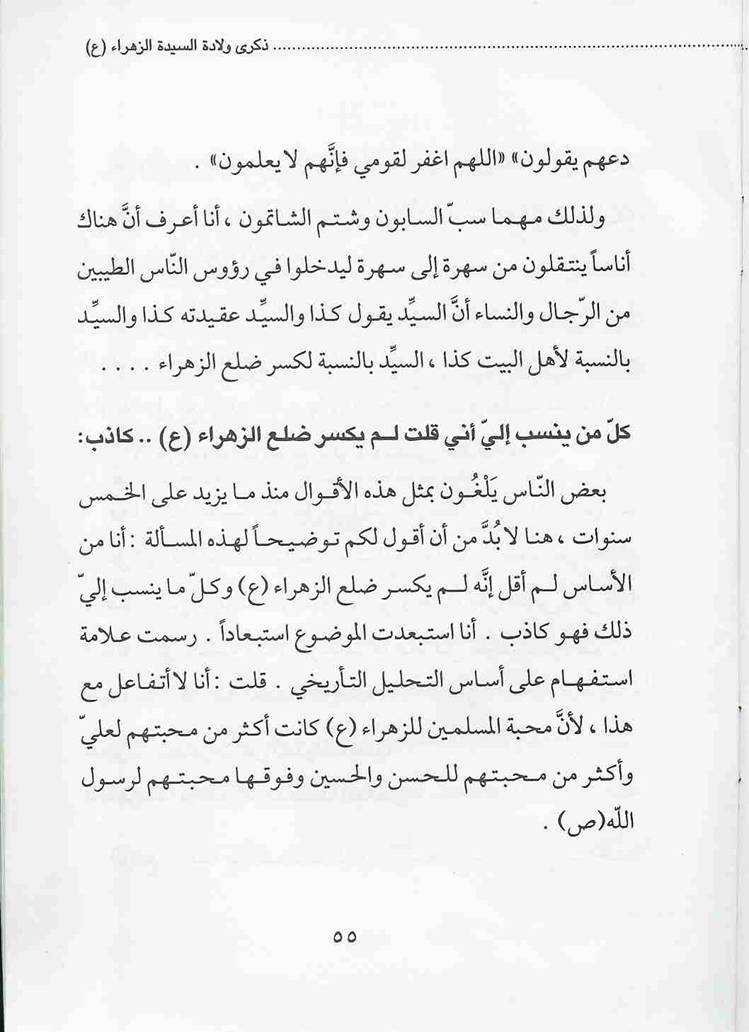 ذكرى ولادة السيدة الزهراء (ع)
دعهم يقولون» «اللهم اغفر لقومي فإنَّهم لا يعلمون» .
ولذلك مهما سبّ السابون وشتم الشاتمون ، أنا أعرف أنَّ هناك
أناساً ينتقلون من سهرة إلى سهرة ليدخلوا في رؤوس النّاس الطيبين
من الرّجال والنساء أنَّ السيِّد يقول كذا والسيِّد عقيدته كذا والسيِّد
بالنسبة لأهل البيت كذا ، السيِّد بالنسبة لكسر ضلع الزهراء . . . .
كلّ من ينسب إليّ أني قلت لم يكسر ضلع الزهراء (ع) .. كاذب:
بعض النّاس يَلْغُون بمثل هذه الأقوال منذ ما يزيد على الخمس
سنوات ، هنا لا بُدَّ من أن أقول لكم توضيحاً لهذه المسألة : أنا من
الأساس لم أقل إنَّه لم يكسر ضلع الزهراء (ع) وكلّ ما ينسب إليّ
ذلك فهو كاذب . أنا استبعدت الموضوع استبعاداً . رسمت علامة
استفهام على أساس التحليل التأريخي . قلت : أنا لا أتفاعل مع
هذا ، لأنَّ محبة المسلمين للزهراء (ع) كانت أكثر من محبتهم لعليّ
وأكثر من محبتهم للحسن والحسين وفوقها محبتهم لرسول
اللّه(ص) .
٥٥